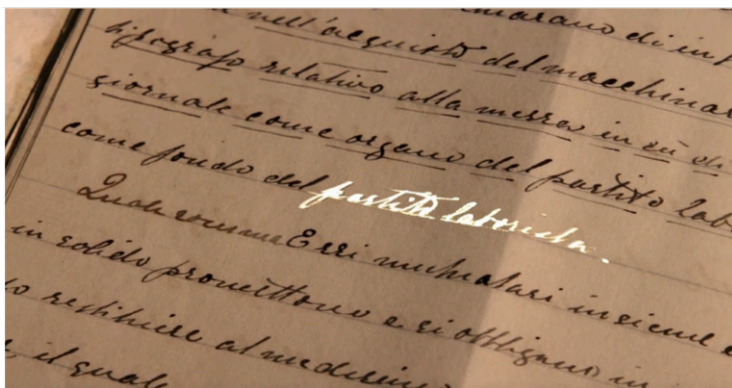 marano di in
nell'acquisto del macchinar
tipografo relativo alla messa in su di
giornale come organo del partito lab
come fondo del partito laborista.
Quale somma Essi mutuatari insieme e
in solido promettono e si obbligano in
restituire al medesimo
il quale